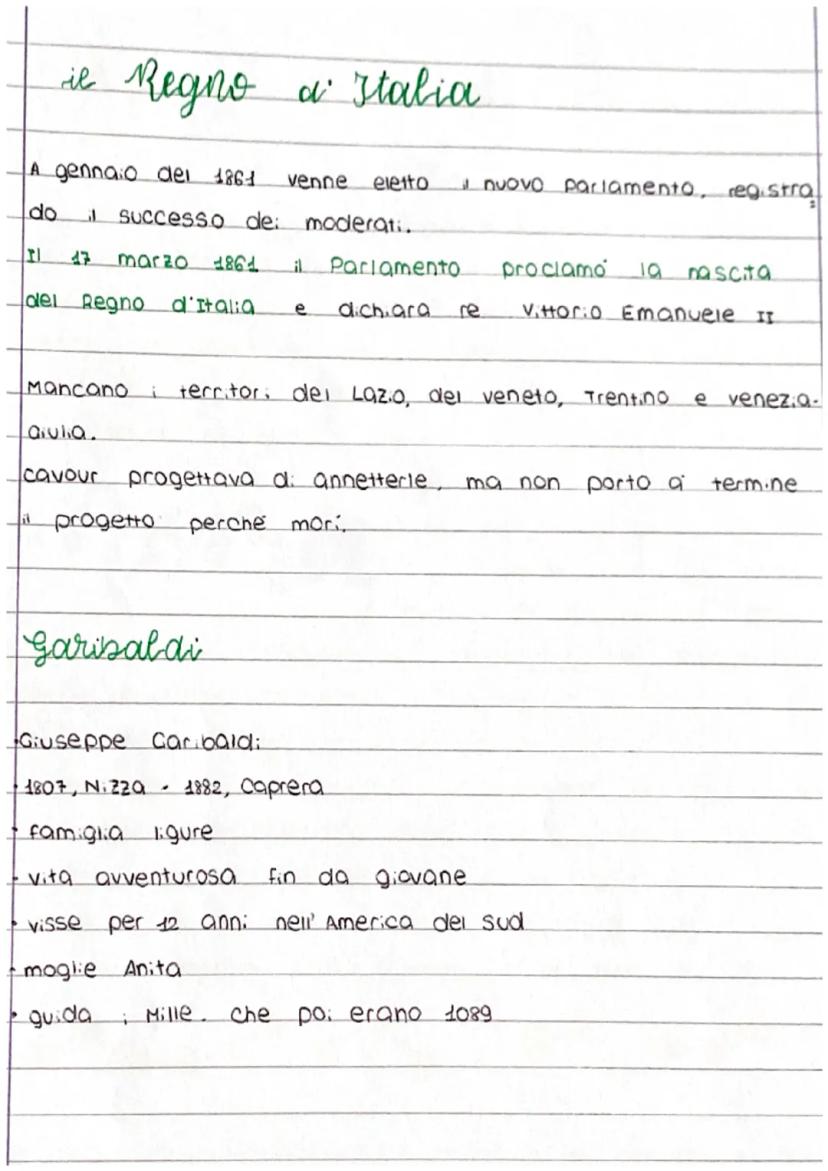 il Regno d'Italia
A gennaio del 1861 venne eletto il nuovo parlamento, registra
do il successo dei moderati.
Il 17 marzo 1861 il Parlamento proclamó la nascita
del Regno d'Italia e dichiara re Vittorio Emanuele II
Mancano i territori del Lazio, del veneto, Trentino e venezia-
Giulia.
cavour progettava di annetterle, ma non porto a termine
il progetto perché morí.
Garibaldi
Giuseppe Garibaldi
1807, Nizza - 1882, Caprera
famiglia ligure
vita avventurosa fin da giovane
visse per 12 anni nell' America del sud
moglie Anita
guida i Mille. che poi erano 1089